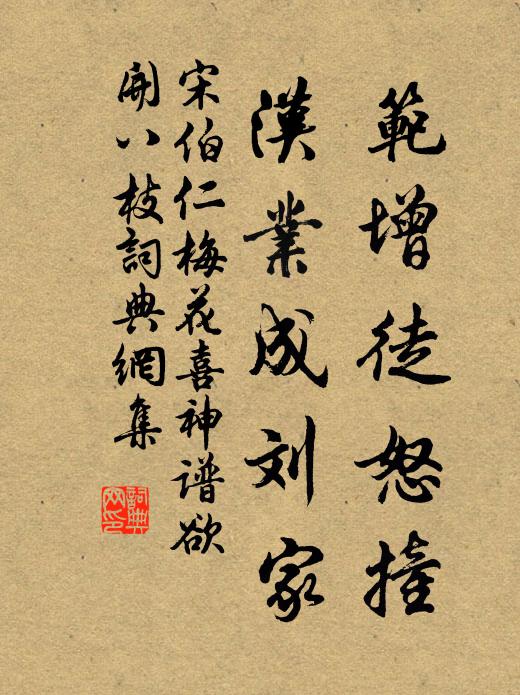 範增徒怒撞
漢業成刘家
宋伯仁梅花喜神谱欲
開八枝詞典網集
詞典
网印